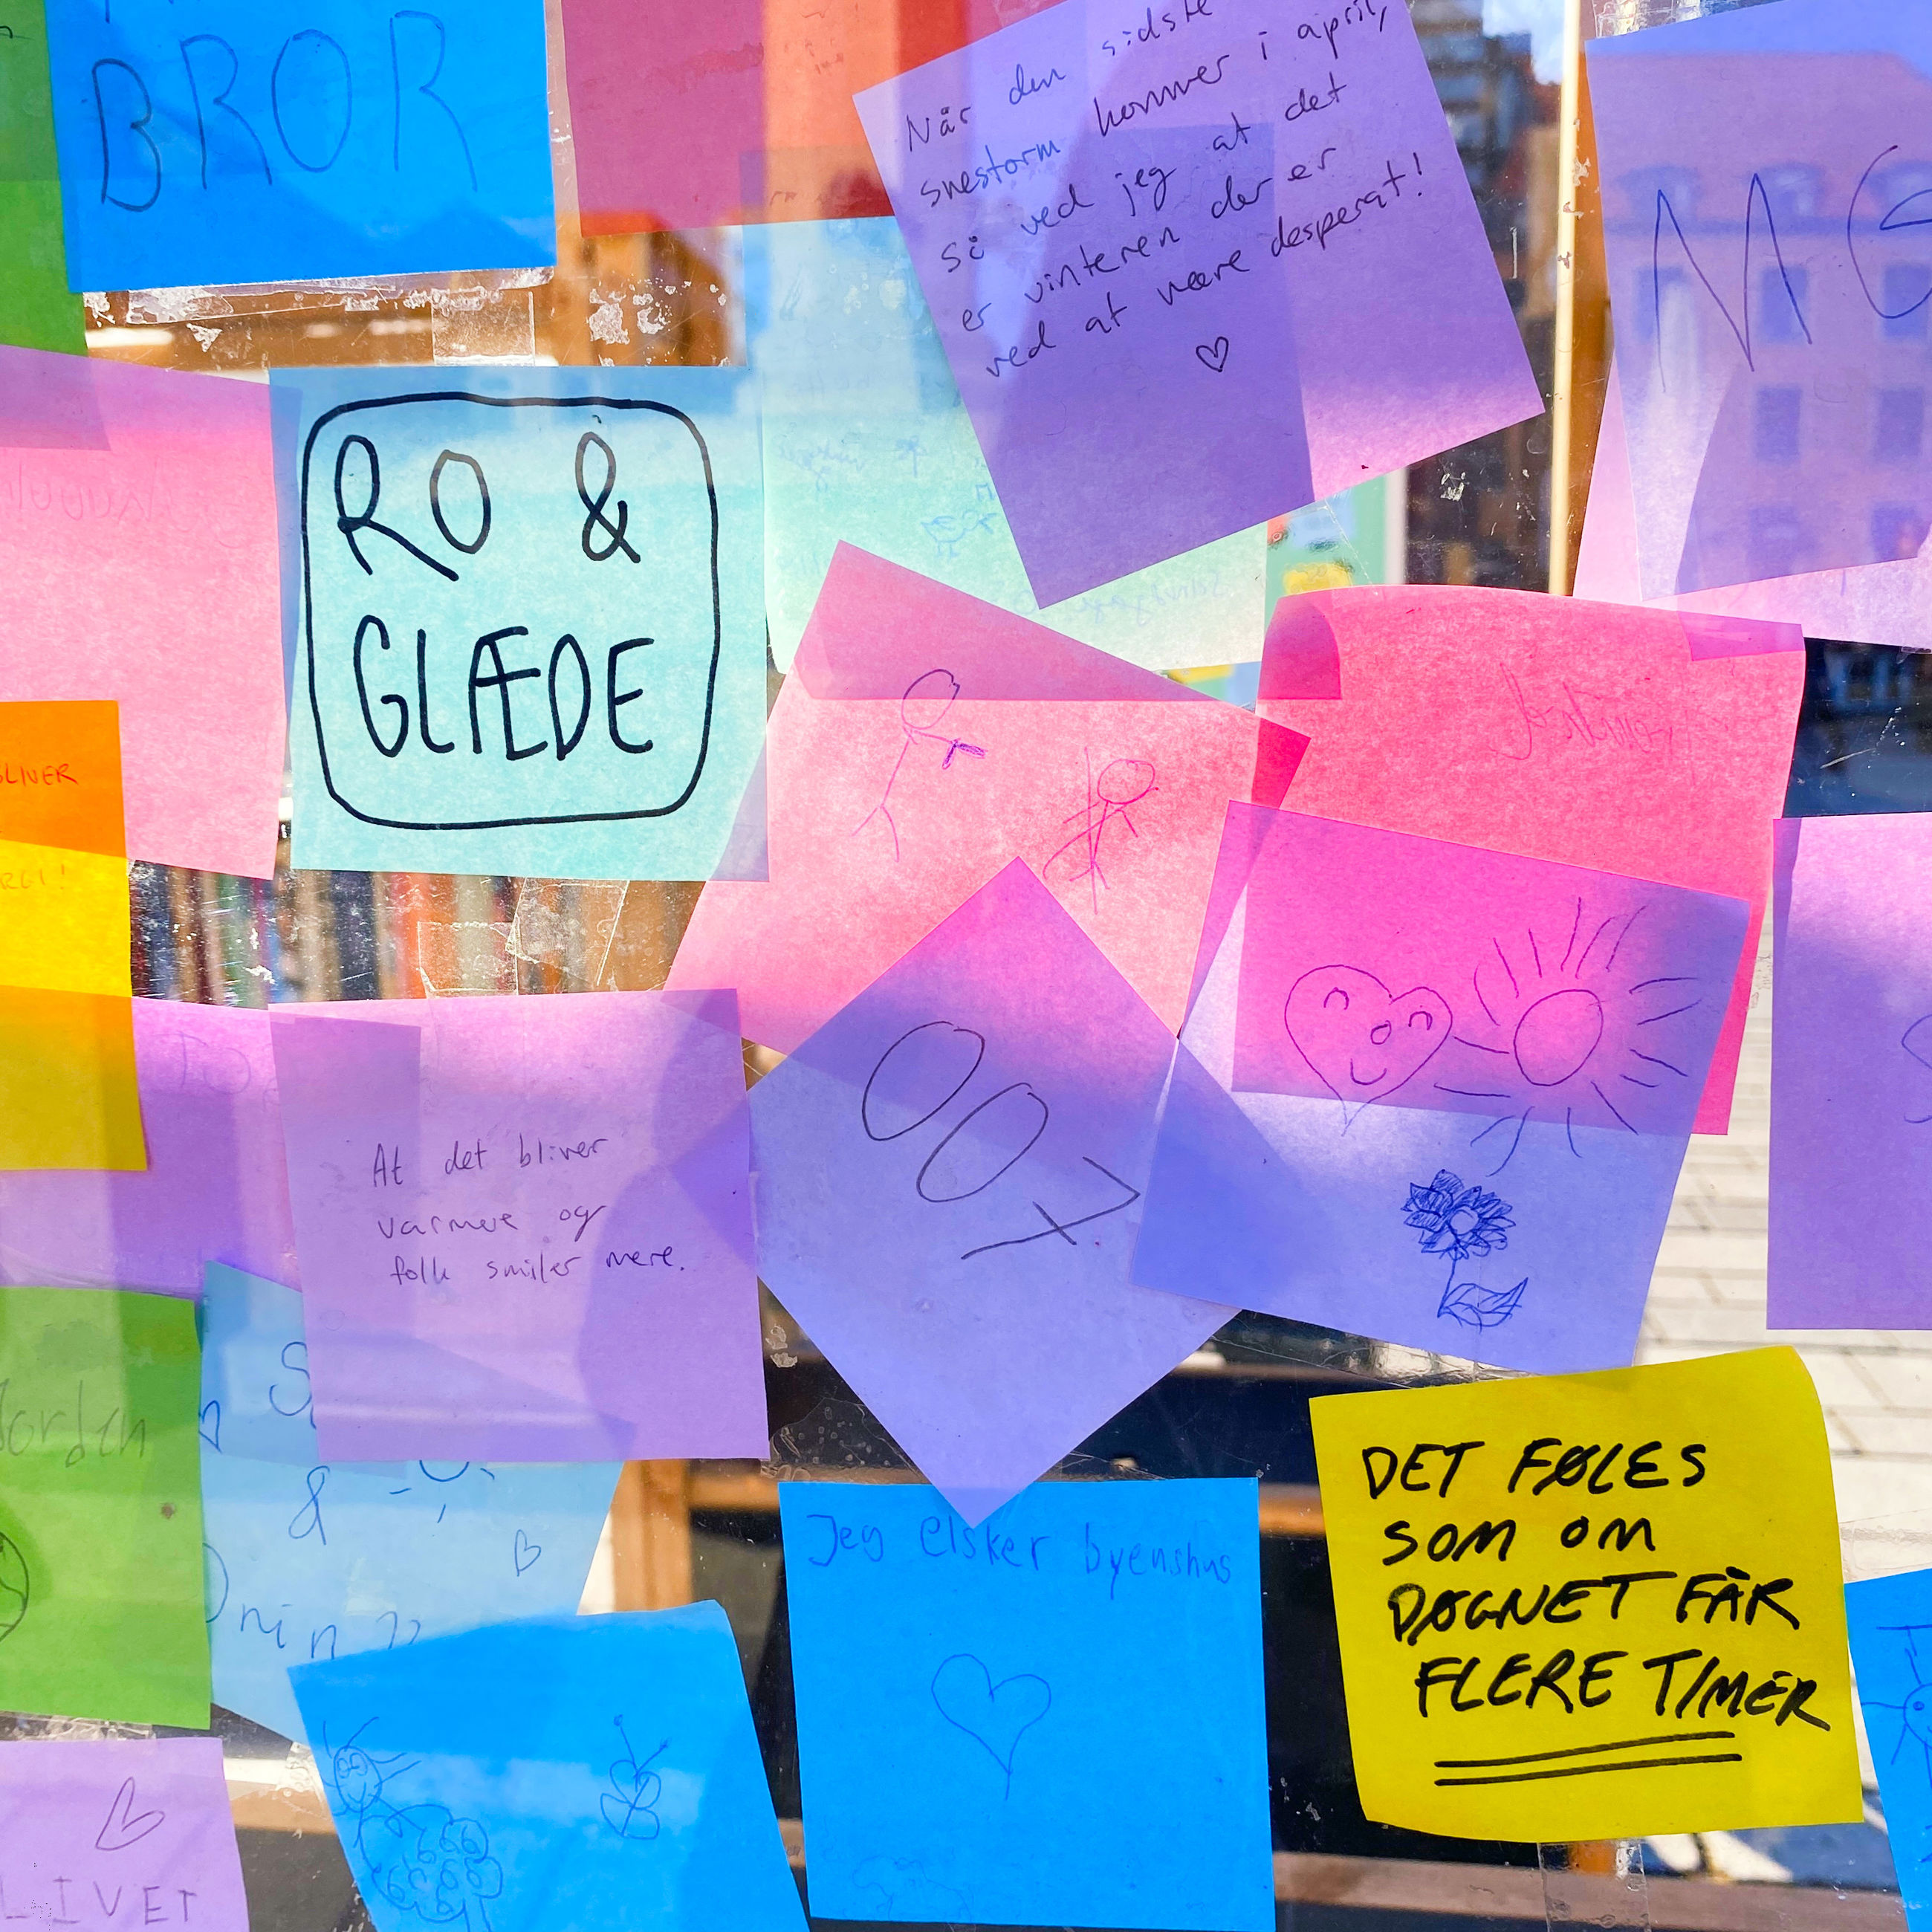 BROR
Når den sidste
snestorm kommer i april,
så ved jeg at det
er vinteren der er
ved at være desperat!
RO &
GLÆDE
BLIVER
RGI!
At det bliver
varmere og
folk smiler mere.
007
Jorden
&
LIVET
Jeg elsker byenshus
DET FØLES
SOM OM
DØGNET FÅR
FLERE TIMER